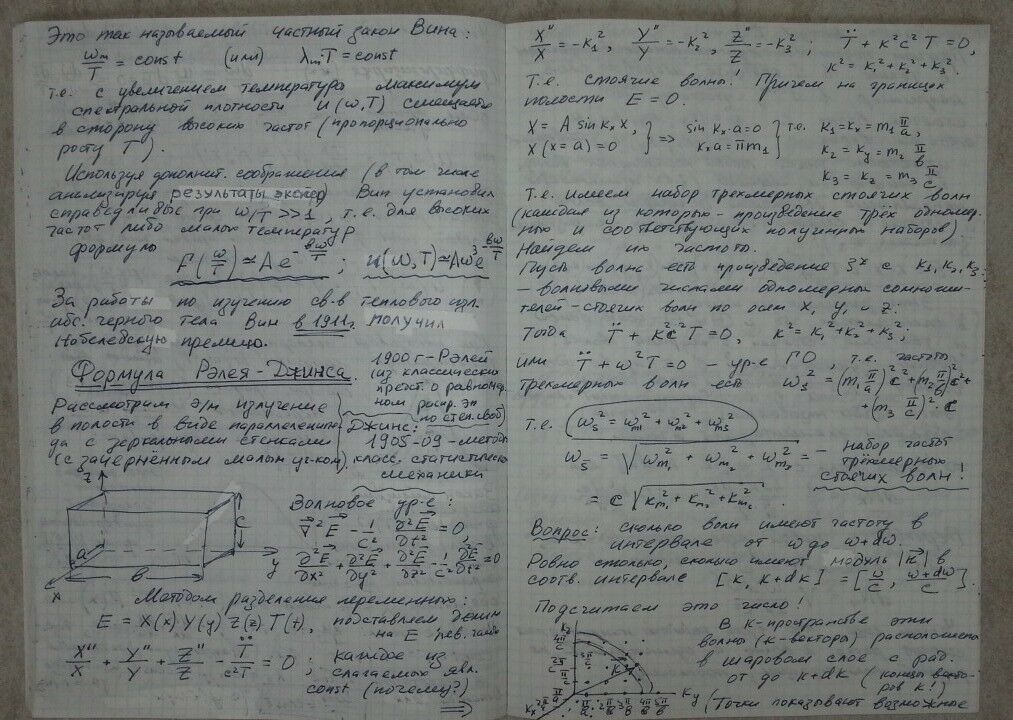 Это так называемый частный закон Вина:
ωm/T = const (или) λm T = const
т.е. с увеличением температура максимум
спектральной плотности u(ω,T) смещается
в сторону высоких частот (пропорционально
росту T).
Используя дополнит. соображения (в том числе
анализируя результаты экспер) Вин установил
справедливые при ω/T >> 1, т.е. для высоких
частот либо малых температур
формулы
F(ω/T) ≃ A e^(-bω/T) ; u(ω,T) ≃ Aω³e^(-bω/T)
За работы по изучению св-в теплового изл.
абс. черного тела Вин в 1911г. получил
Нобелевскую премию.
Формула Рэлея-Джинса.
1900 г - Рэлей
(из классических
предст. о равномер-
ном распр. эн
по степ. свобод)
Джинс:
1905-09 - методы
класс. статистической
механики
Рассмотрим э/м излучение
в полости в виде параллелепипе-
да с зеркальными стенками
(с зачернённым малым уг-ком)
z
a
b
c
x
y
Волновое ур-е:
∇²E - 1/c² ∂²E/∂t² = 0,
∂²E/∂x² + ∂²E/∂y² + ∂²E/∂z² - 1/c² ∂²E/∂t² = 0
Методом разделение переменных:
E = X(x) Y(y) Z(z) T(t), подставляем делим
на E
X''/X + Y''/Y + Z''/Z - T̈/c²T = 0 ; каждое из
слагаемых явл.
const (почему?)
⇒
X''/X = -k₁², Y''/Y = -k₂², Z''/Z = -k₃² ; T̈ + k²c²T = 0,
k² = k₁² + k₂² + k₃².
Т.е. стоячие волны! Причем на границах
полости E = 0.
X = A sin kₓ x, } => sin kₓ·a = 0 } т.о. k₁ = kₓ = m₁ π/a,
X(x=a) = 0 kₓa = πm₁ k₂ = k_y = m₂ π/b
k₃ = k_z = m₃ π/c
Т.е. имеем набор трехмерных стоячих волн
(каждая из которых - произведение трёх одномер-
ных и соответствующих полученных наборов).
Найдем их частоты.
Пусть волна есть произведение 3х с k₁, k₂, k₃:
- волновыми числами одномерных сомножи-
телей - стоячих волн по осям x, y, и z:
Тогда T̈ + k²c²T = 0, k² = k₁² + k₂² + k₃²;
или T̈ + ω²T = 0 - ур-е ГО, т.е. частоты
трехмерных волн есть ωs² = (m₁ π/a)²c² + (m₂ π/b)²c² +
+ (m₃ π/c)²·c
т.е. ωs² = ωm₁² + ωm₂² + ωm₃²
ωs = √(ωm₁² + ωm₂² + ωm₃²) = - набор частот
трёхмерных
стоячих волн!
= c √(km₁² + km₂² + km₃²)
Вопрос: сколько волн имеют частоту в
интервале от ω до ω+dω.
Ровно столько, сколько имеют модуль |k| в
соотв. интервале [k, k+dk] = [ω/c, ω+dω/c].
Подсчитаем это число!
В k-пространстве эти
волны (k-векторы) расположены
в шаровом слое с рад.
от до k+dk (концы векто-
ров k!)
(Точки показывают возможные
k
kx
ky